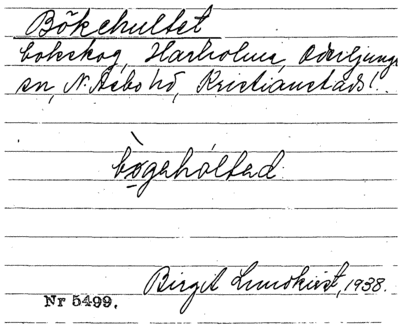 Bökehultet
bokskog, Harholma, Oderljunga
sn, N. Åsbo hd, Kristianstads l.
bögehóltad
Birgit Lundkvist, 1938.
Nr 5499.